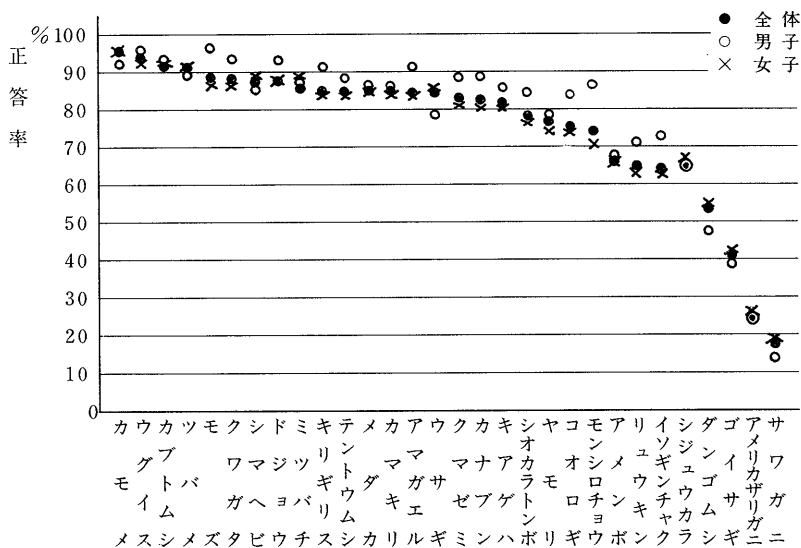 % 100
90
80
70
60
50
40
30
20
10
0
正答率
● 全体
○ 男子
× 女子
カモメ
ウグイス
カブトムシ
ツバメ
モズ
クワガタ
シマヘビ
ドジョウ
ミツバチ
キリギリス
テントウムシ
メダカ
カマキリ
アマガエル
ウサギ
クマゼミ
カナブン
キアゲハ
シオカラトンボ
ヤモリ
コオロギ
モンシロチョウ
アメンボ
リュウキン
イソギンチャク
シジュウカラ
ダンゴムシ
ゴイサギ
アメリカザリガニ
サワガニ